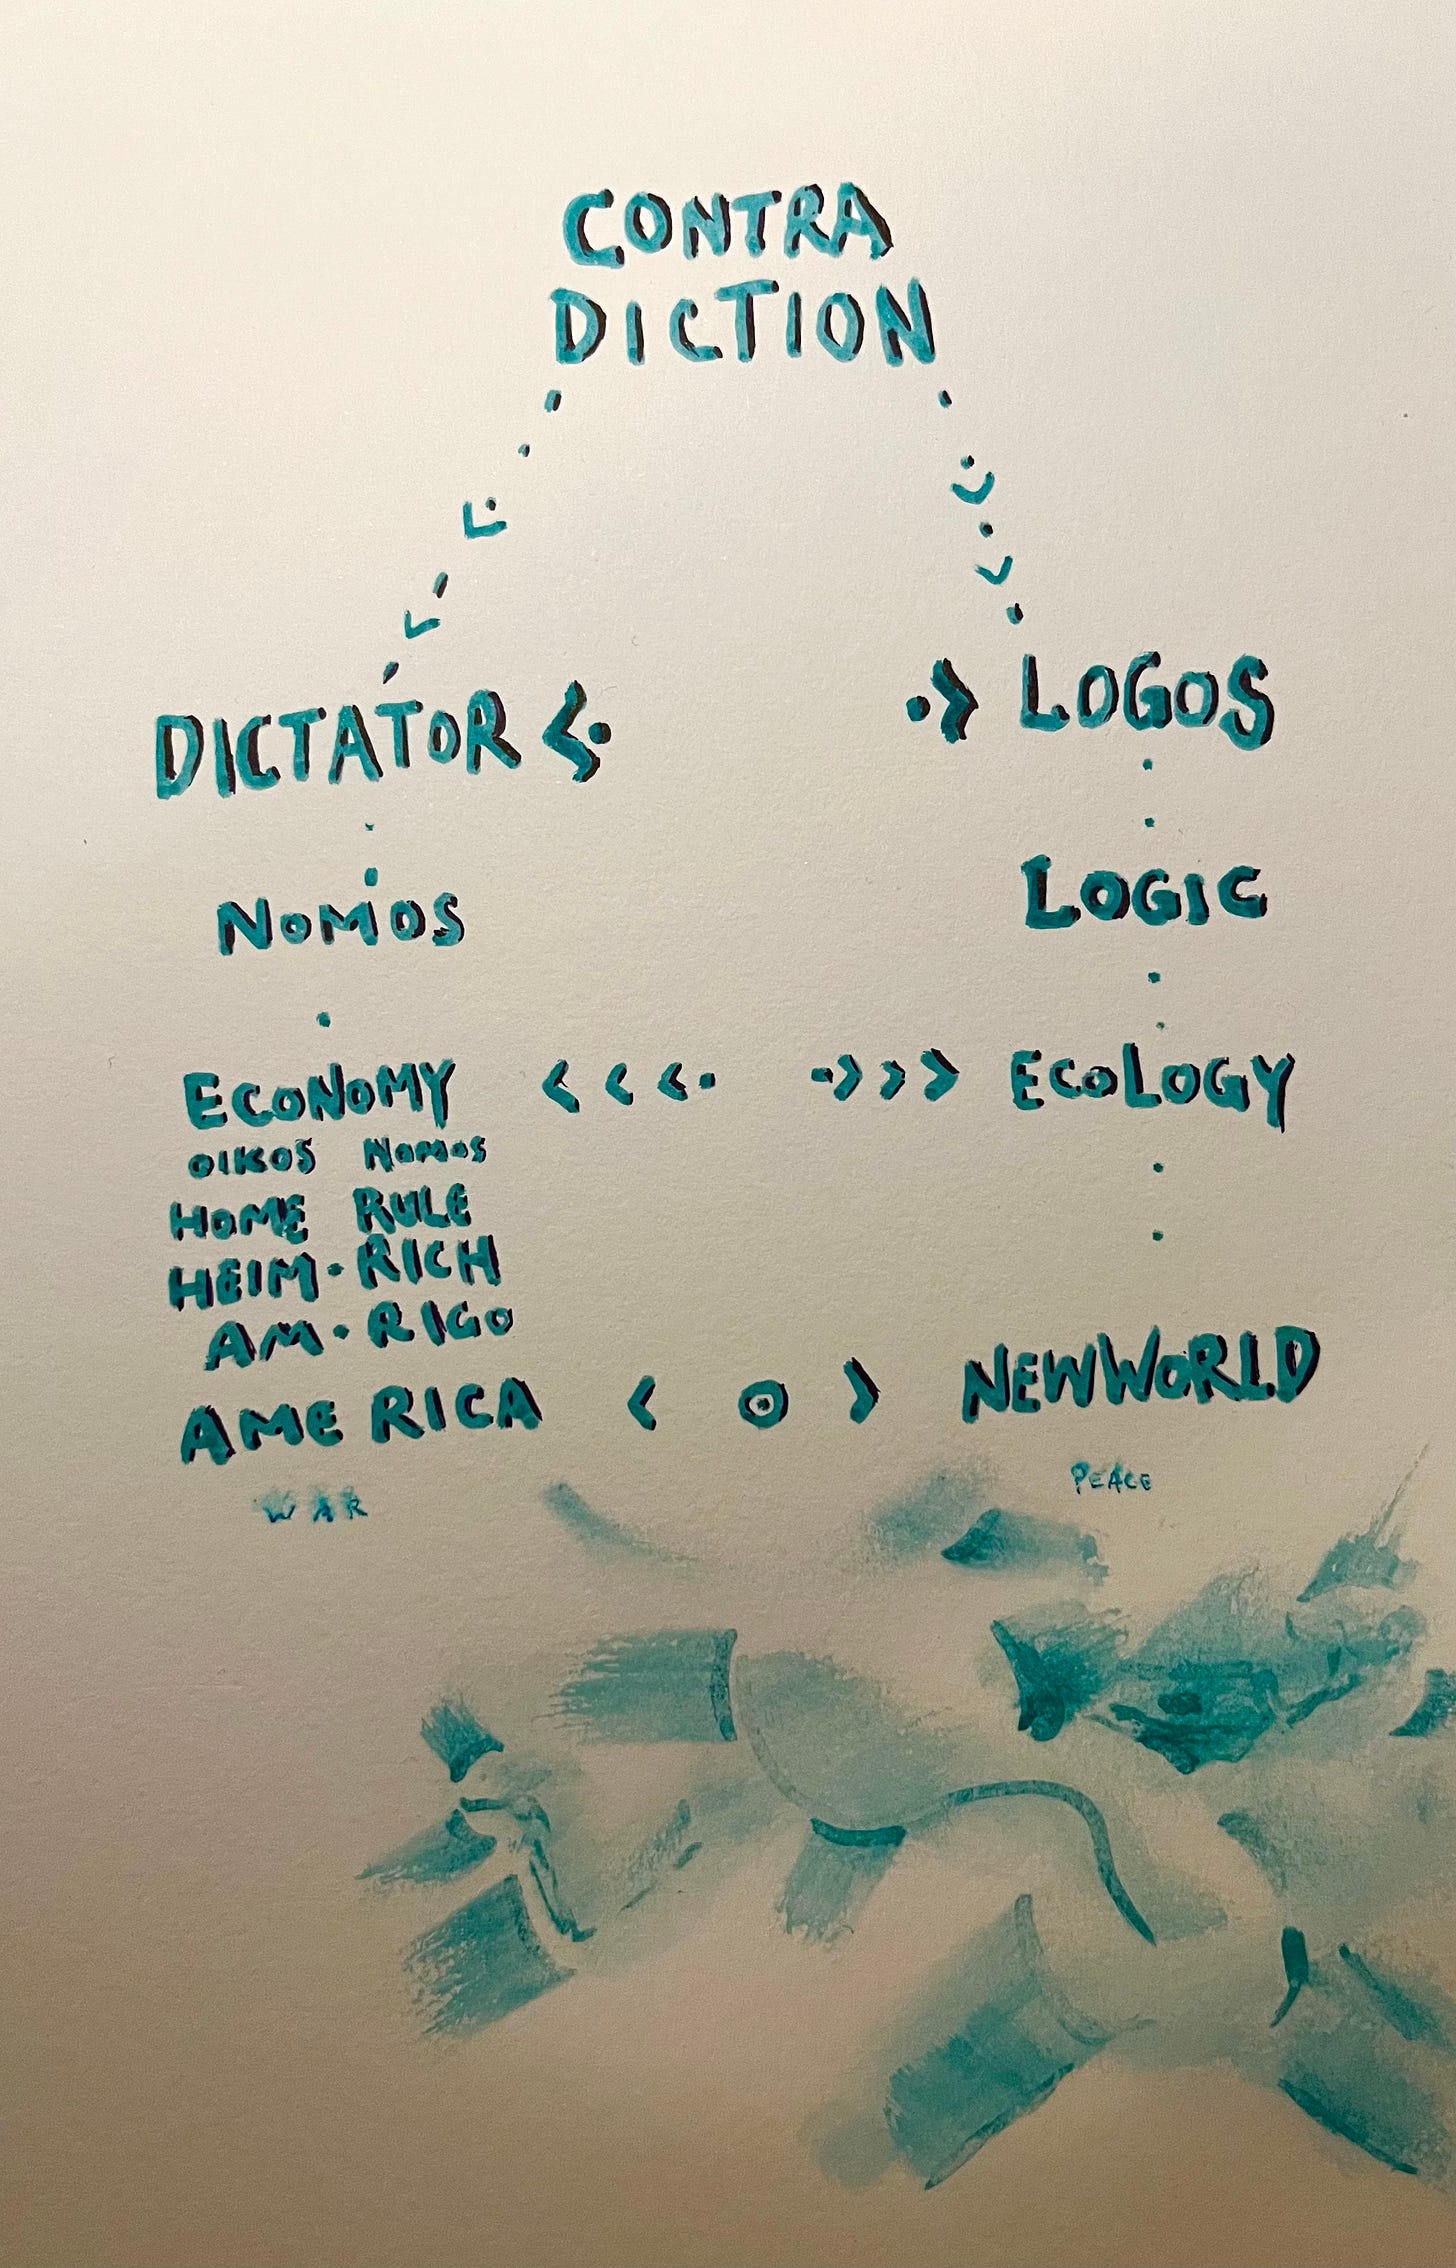 CONTRA
DICTION
DICTATOR
LOGOS
NOMOS
LOGIC
ECONOMY
ECOLOGY
OIKOS NOMOS
HOME RULE
HEIM·RICH
AM·RIGO
AMERICA
NEWWORLD
WAR
PEACE